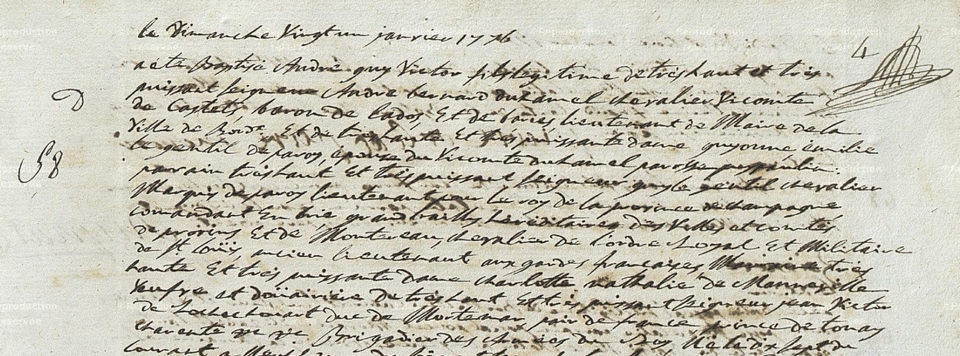 le Dimanche Vingt un janvier 1776
4
a ete Baptisé André guy Victor fils legitime de tres haut et tres
puissant seigneur André bernard duhamel chevalier Vicomte
D
de Castets baron de Lados Et de lieutenant de Maire de la
Ville de Bordx Et de tres haute Et tres puissante dame guyonne emilie
58
le gentil de paroy epouse du Vicomte duhamel paroisse
parrain tres haut Et tres puissant seigneur guy le gentil chevalier
Marquis de paroy lieutenant pour le roy de la province de champagne
comandant En brie grand bailly hereditaire des Villes et comtés
de provins Et de Montereau, chevalier de l'ordre Royal Et Militaire
de st loüis ancien lieutenant aux gardes françaises tres
haute Et tres puissante dame charlotte nathalie de Manneville
Veufve et doüairiere de tres haut Et tres puissant seigneur jean Victor
de Rochechouart duc de Mortemar pair de france prince de tonay
charente Brigadier des armées du Roy
courant a